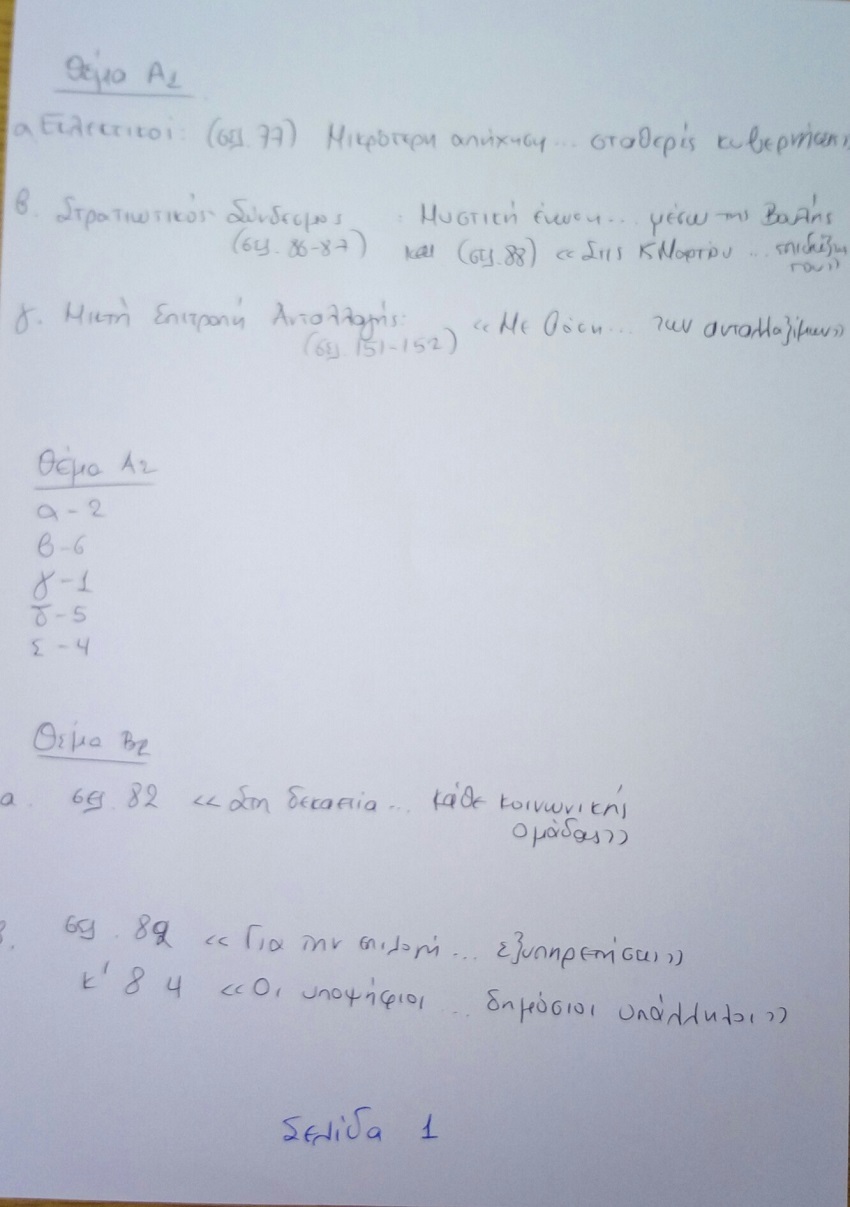 Θέμα Α1
α Εκλεκτικοί: (σελ. 77) Μικρότερη απήχηση... σταθερές κυβερνήσεις»
β. Στρατιωτικός Σύνδεσμος : Μυστική ένωση... μέσω της Βουλής
(σελ. 86-87) και (σελ. 88) «Στις
του»
γ. Μικτή Επιτροπή Ανταλλαγής: «Με βάση... των ανταλλαξίμων»
(σελ. 151-152)
Θέμα Α2
α - 2
β - 6
γ - 1
δ - 5
ε - 4
Θέμα Β2
α. σελ. 82 «Στη δεκαετία... κάθε κοινωνικής
ομάδας»
β. σελ. 82 «Για την επιλογή... εξυπηρετήσεις»
κ' 84 «Οι υποψήφιοι... δημόσιοι υπάλληλοι»
Σελίδα 1